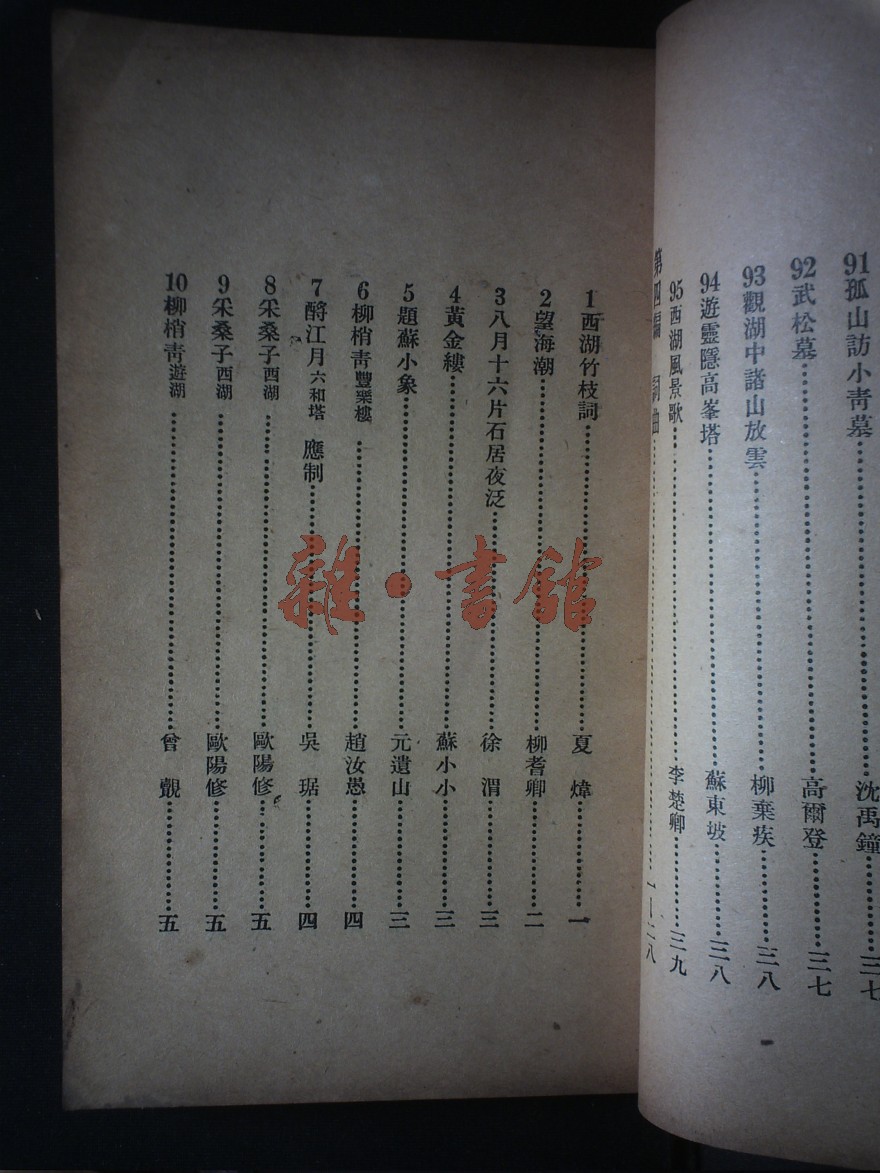 91孤山訪小靑墓……沈禹鐘……三七
92武松墓……高爾登……三七
93觀湖中諸山放雲……柳棄疾……三八
94遊靈隱高峯塔……蘇東坡……三八
95西湖風景歌……李楚卿……三九
第四編 詞曲……一—二八
1西湖竹枝詞……夏煒……一
2望海潮……柳耆卿……二
3八月十六片石居夜泛……徐渭……三
4黃金縷……蘇小小……三
5題蘇小象……元遺山……三
6柳梢靑豐樂樓……趙汝愚……四
7酹江月六和塔 應制……吳琚……四
8采桑子西湖……歐陽修……五
9采桑子西湖……歐陽修……五
10柳梢靑遊湖……曾覿……五
雜·書館